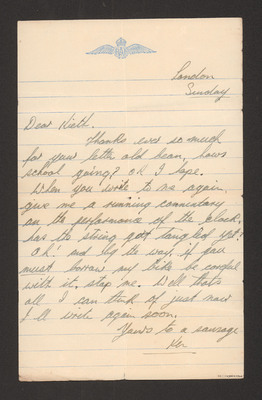 London
Sunday
Dear Kieth.
Thanks ever so much
for your letter old bean, hows
school going? o.k I hope.
When you write to me again,
give me a running commentary
on the performance of the clock.
has the string got tangled yet?
Oh! and by the way, if you
must borrow my bike be careful
with it. slap me. Well thats
all I can think of just now
I'll write again soon.
Yours to a sausage
Ken